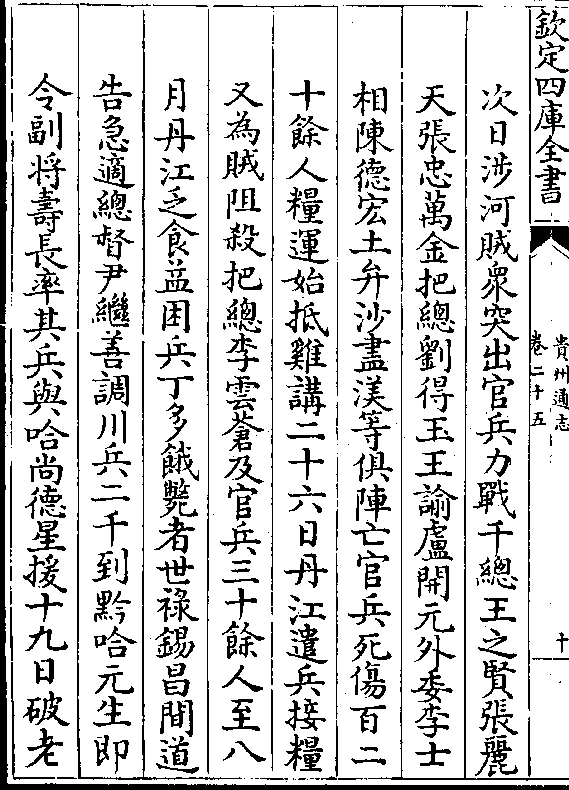 欽定四庫全書
貴州通志
卷二十五
十
次日涉河賊衆突出官兵力戰千總王之賢張麗
天張忠萬金把總劉得玉王諭盧開元外委李士
相陳德宏土弁沙盡渼等俱陣亡官兵死傷百二
十餘人糧運始抵雞講二十六日丹江遣兵接糧
又為賊阻殺把總李雲蒼及官兵三十餘人至八
月丹江乏食益困兵丁多餓斃者世祿錫昌間道
告急適總督尹繼善調川兵二千到黔哈元生即
令副將壽長率其兵與哈尚德星援十九日破老